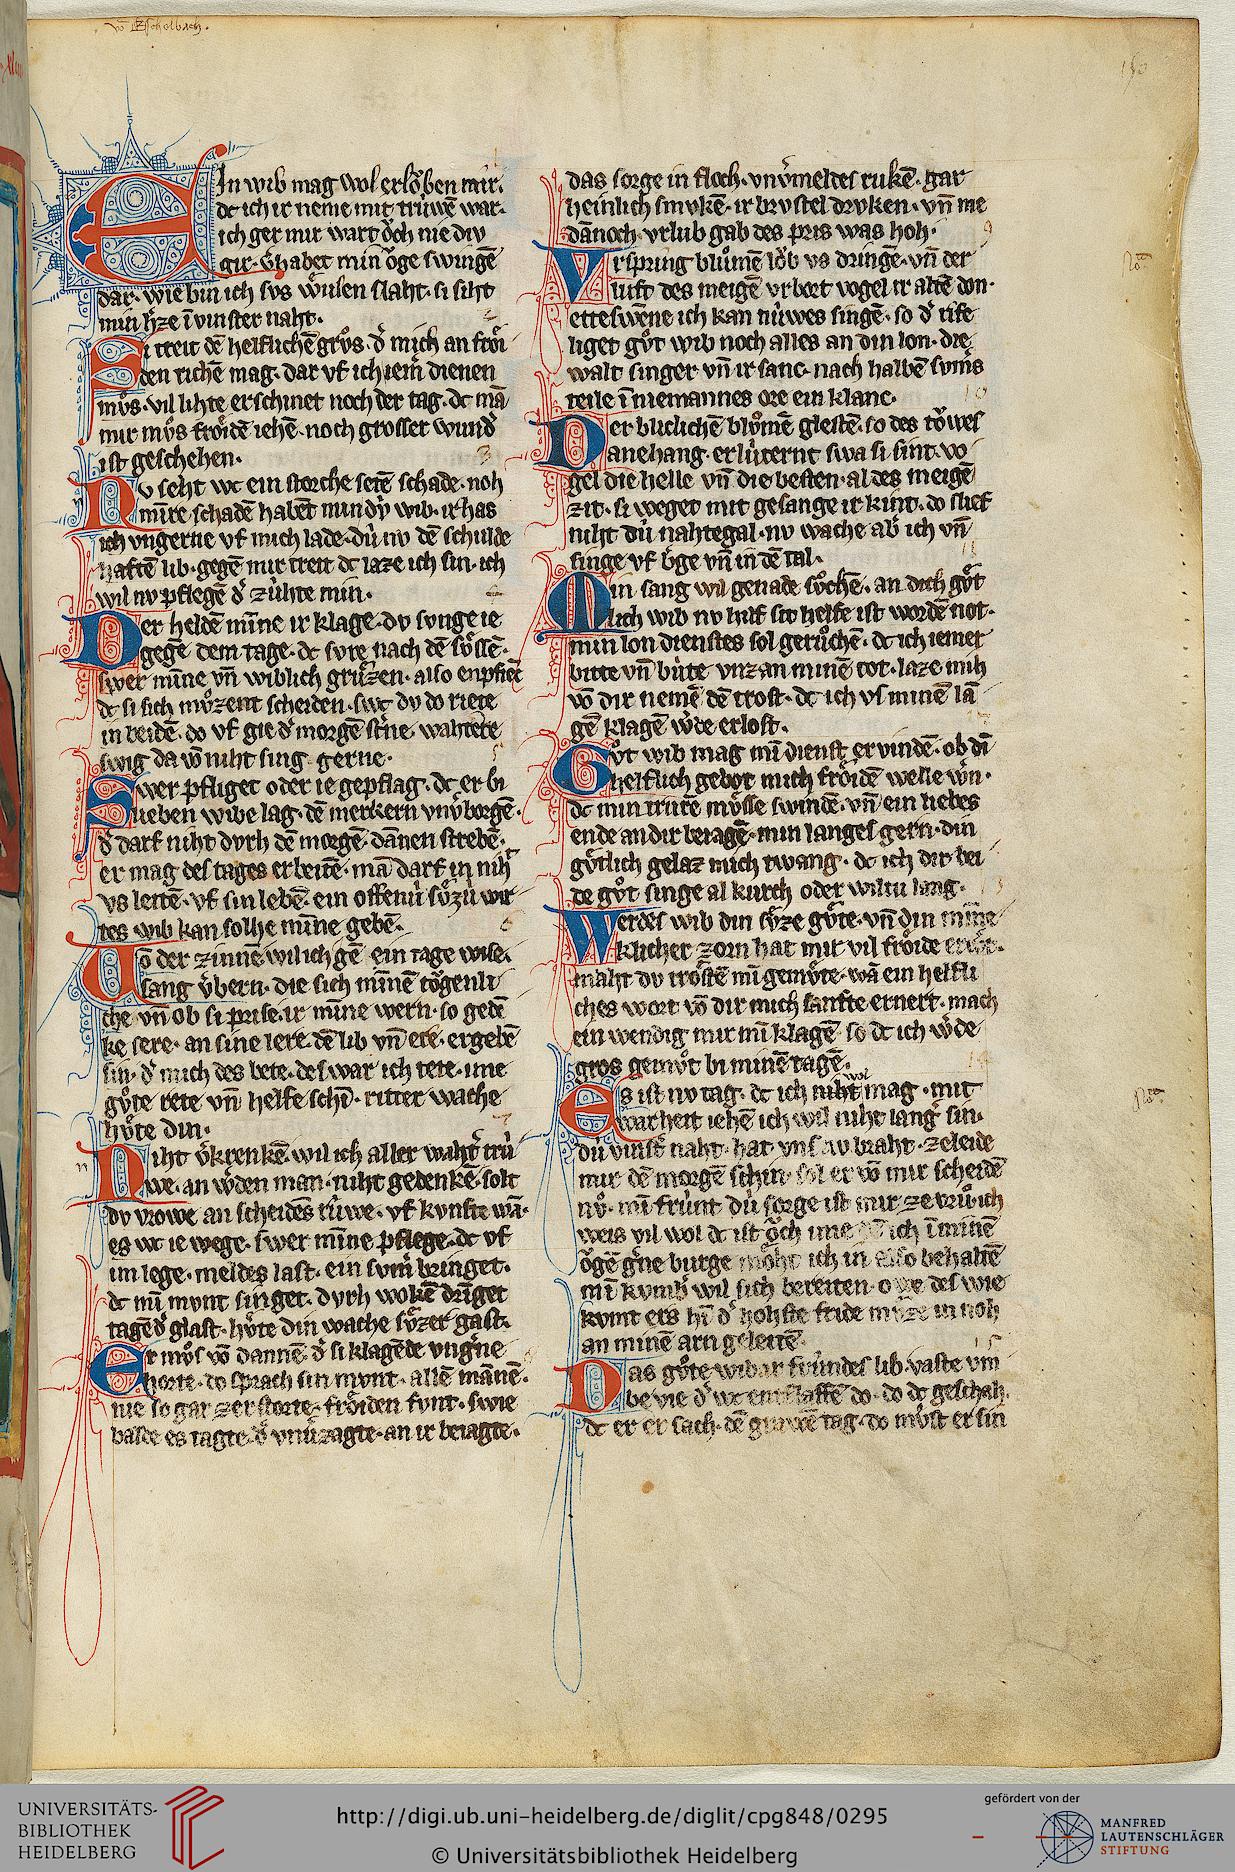 võ Eschelbach.
EIn wib mag wol erloͮben mir.
dc ich ir neme mit trúwē war.
ich ger mir wart oͮch nie div
gir. v̾habet min oͮge swingē
dar. wie bin ich svs
min h̾ze ī vinster naht.
Si treit dē helflichē grvͦs. d̾ mich an froͤi
den richē mag. dar vf ich iem̾ dienen
mvͦs. vil lihte erschinet noch der tag. dc mā
mir mvͦs froͤidē iehē. noch grosser wund̾
ist geschehen.
Nv seht wc ein storche setē schade. noh
miñre schadē habēt min dv́ wib. ir has
ich vngerne vf mich lade. dú nv dē schulde
haftē lib. gegē mir treit dc laze ich sin. ich
wil nv pflegē d̾ zúhte min.
Der heldē miñe ir klage. dv svnge ie
gegē dem tage. dc svre nach dē svͤssē.
swer miñe vñ wiblich grvͤzen. also enpfiēc
dc si sich mvͦzent scheiden. swc dv do riete
in beidē. do vf gie d̾ morgē st̾ne. wahtere
swig da võ niht sing gerne.
Swer pfliget oder ie gepflag. dc er bi
lieben wibe lag. dē merkern vnv̾borgē.
d̾ darf niht dvrh dē morgē. dānen strebē.
er mag des tages erbeitē. mā darf in niht
vs leitē. vf sin lebē. ein offenú svͤzú wir
tes wib kan solhe miñe gebē.
Võ der zinnē wil ich gē ein tage wise.
sang v̾bern. die sich miñē toͮgenli
che vñ ob si prise ir miñe wern. so gedē
ke sere. an sine lere. dē lib vñ ere. ergebē
sin. d̾ mich des bete. deswar ich tete. ime
gvͦte rete vñ helfe schī. ritter wache
hvͤte din.
Niht v̾krenkē wil ich aller waht̾ trú
we. an w̾den man. niht gedenkē solt
dv vrowe an scheidēs rúwe. vf kvnfte wā.
es wc ie wege. swer miñe pflege. dc vf
im lege. meldes last. ein svm̾ bringet.
dc mī mvnt singet. dvrh wolkē dringet
tagēd̾ glast. hvͤte din wache svͤzer gast.
Er mvͦs võ dannē d̾ si klagēde vng̾ne
horte. do sprach sin mvnt. allē mānē.
nie so gar zerstorte. froͤiden fvnt. swie
balde es tagte. d̾ vnv̾zagte. an ir beiagte.
das sorge in floch. vnv̾meldes rukē. gar
heinlich smvkē. ir brvstel drvken. vñ me
dānoch. vrlub gab des pris was hoh.
Vrspring blvͦmē loͮb vs dringē. vñ der
luft des meigē vrbort vogel ir altē don.
etteswēne ich kan núwes singē. so d̾ rife
liget gvͦt wib noch alles an din lon. die
walt singer vñ ir sanc. nach halbē svm̾s
teile ī niemannes ore ein klanc.
Der blichichē blvͦmē glestē. so des toͮwes
anehang. erlúternt swa si sint. vo
gel die helle vñ die besten. al des meigē
zit. si weget mit gesange ir kint. do slief
niht dú nahtegal. nv wache ab̾ ich vñ
singe vf b̾ge vñ in dē tal.
Min sang wil genade svͦchē. an dich gvͤt
lich wib nv hilf sit helfe ist wordē not.
min lon dienstes sol gervͦchē. dc ich iemer
bitte vñ bv́te vnz an minē tot. laze mih
võ dir nemē dē trost. dc ich vs minē lā
gē klagē w̾de erlost.
Gvͦt wib mag mī dienst ervindē. ob dī
helflich gebot mich froͤidē welle w̾n.
dc min trurē mvͤsse swindē. vñ ein liebes
ende an dir beiagē. min langes gern. din
gvͤtlich gelaz mich twang. dc ich dir bei
de gvͦt singe al kurch oder wiltu lang.
Werdes wib din svͤze gvͤte. vñ din miñe
klicher zorn hat mir vil froͤide erwert.
maht dv trostē mī gemvͤte. wā ein helfli
ches wort võ dir mich sanfte ernert. mach
ein wendig mir mī klagē so dc ich w̾de
gros gemvͦt bi minē tagē.
Es ist nv tag. dc ich niht wol mag. mit
warheit iehē ich wil niht lang sin.
dú vinst̾ naht. hat vns nv braht. ze leide
mir dē morgē schin. sol er võ mir scheidē
nv. mī frúnt dú sorge ist mir ze vrvͦ. ich
weis vil wol dc ist oͮch ime dē ich ī minē
oͮgē g̾ne burge moͤht ich in also behaltē
mī kvmb̾ wil sich bereiten. owe des wie
kvmt ers hī d̾ hohste fride mvͤze in noh
an minē arn geleitē.
Das gvͦte wib ir frúndes lib. vaste vm
be vie d̾ wc entslaffē do. do dc geschah.
dc er er sach. dē grawē tag. do mvͦst er sin
UNIVERSITÄTS-
BIBLIOTHEK
HEIDELBERG
http://digi.ub.uni-heidelberg.de/diglit/cpg848/0295
© Universitätsbibliothek Heidelberg
gefördert von der
MANFRED
LAUTENSCHLÄGER
STIFTUNG